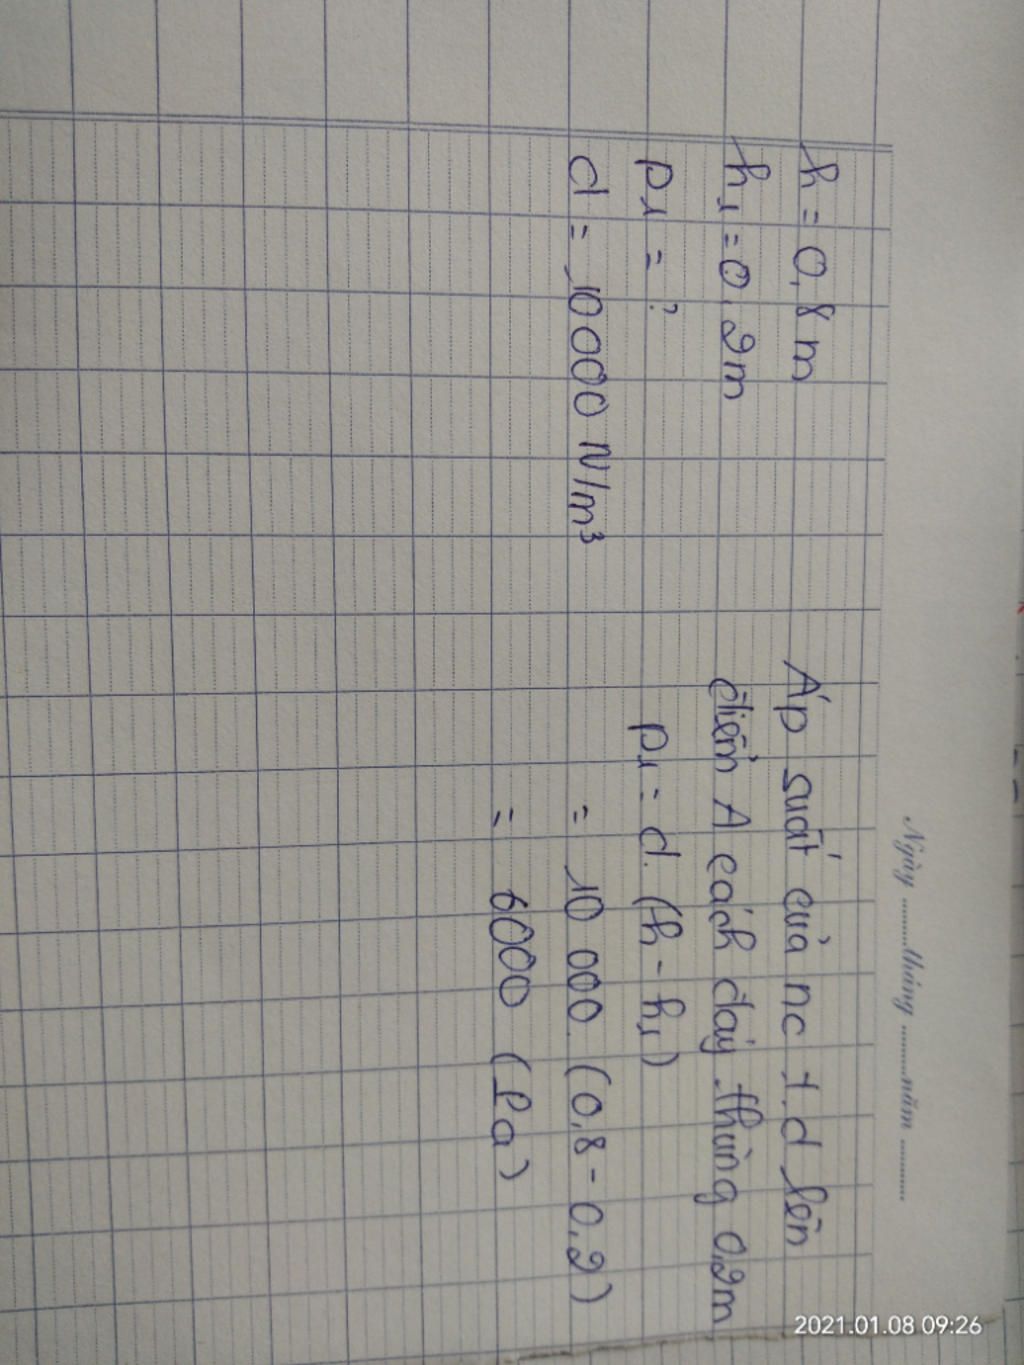 Ngày ......... tháng ......... năm .........
h = 0,8 m
h₁ = 0,2m
p₁ = ?
d = 10000 N/m³
Áp suất của nc t.d lên
điểm A cách đáy thùng 0,2m
p₁ = d. (h - h₁)
= 10 000. (0,8 - 0,2)
= 6000 (Pa)
2021.01.08 09:26